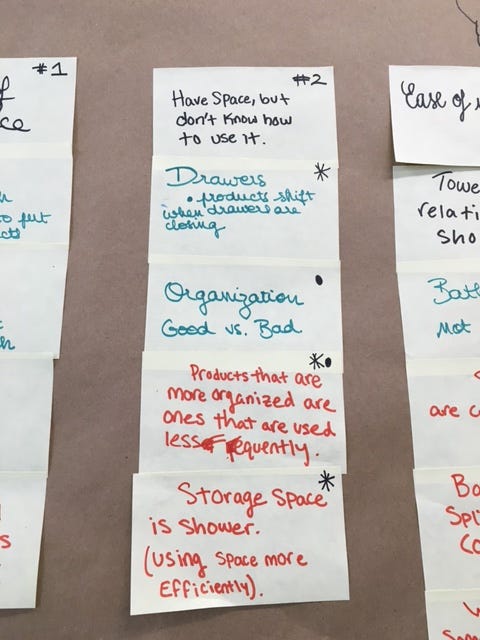 #1
#2
Have Space, but
don't know how
to use it.
Drawers
• products shift
when drawers are
closing
Organization
Good vs. Bad
Products that are
more organized are
ones that are used
less equently.
Storage space
is shower.
(using space more
Efficiently).
Ease of
Towe
relati
sho
Bath
Not
are c
Ba
Spli
Co